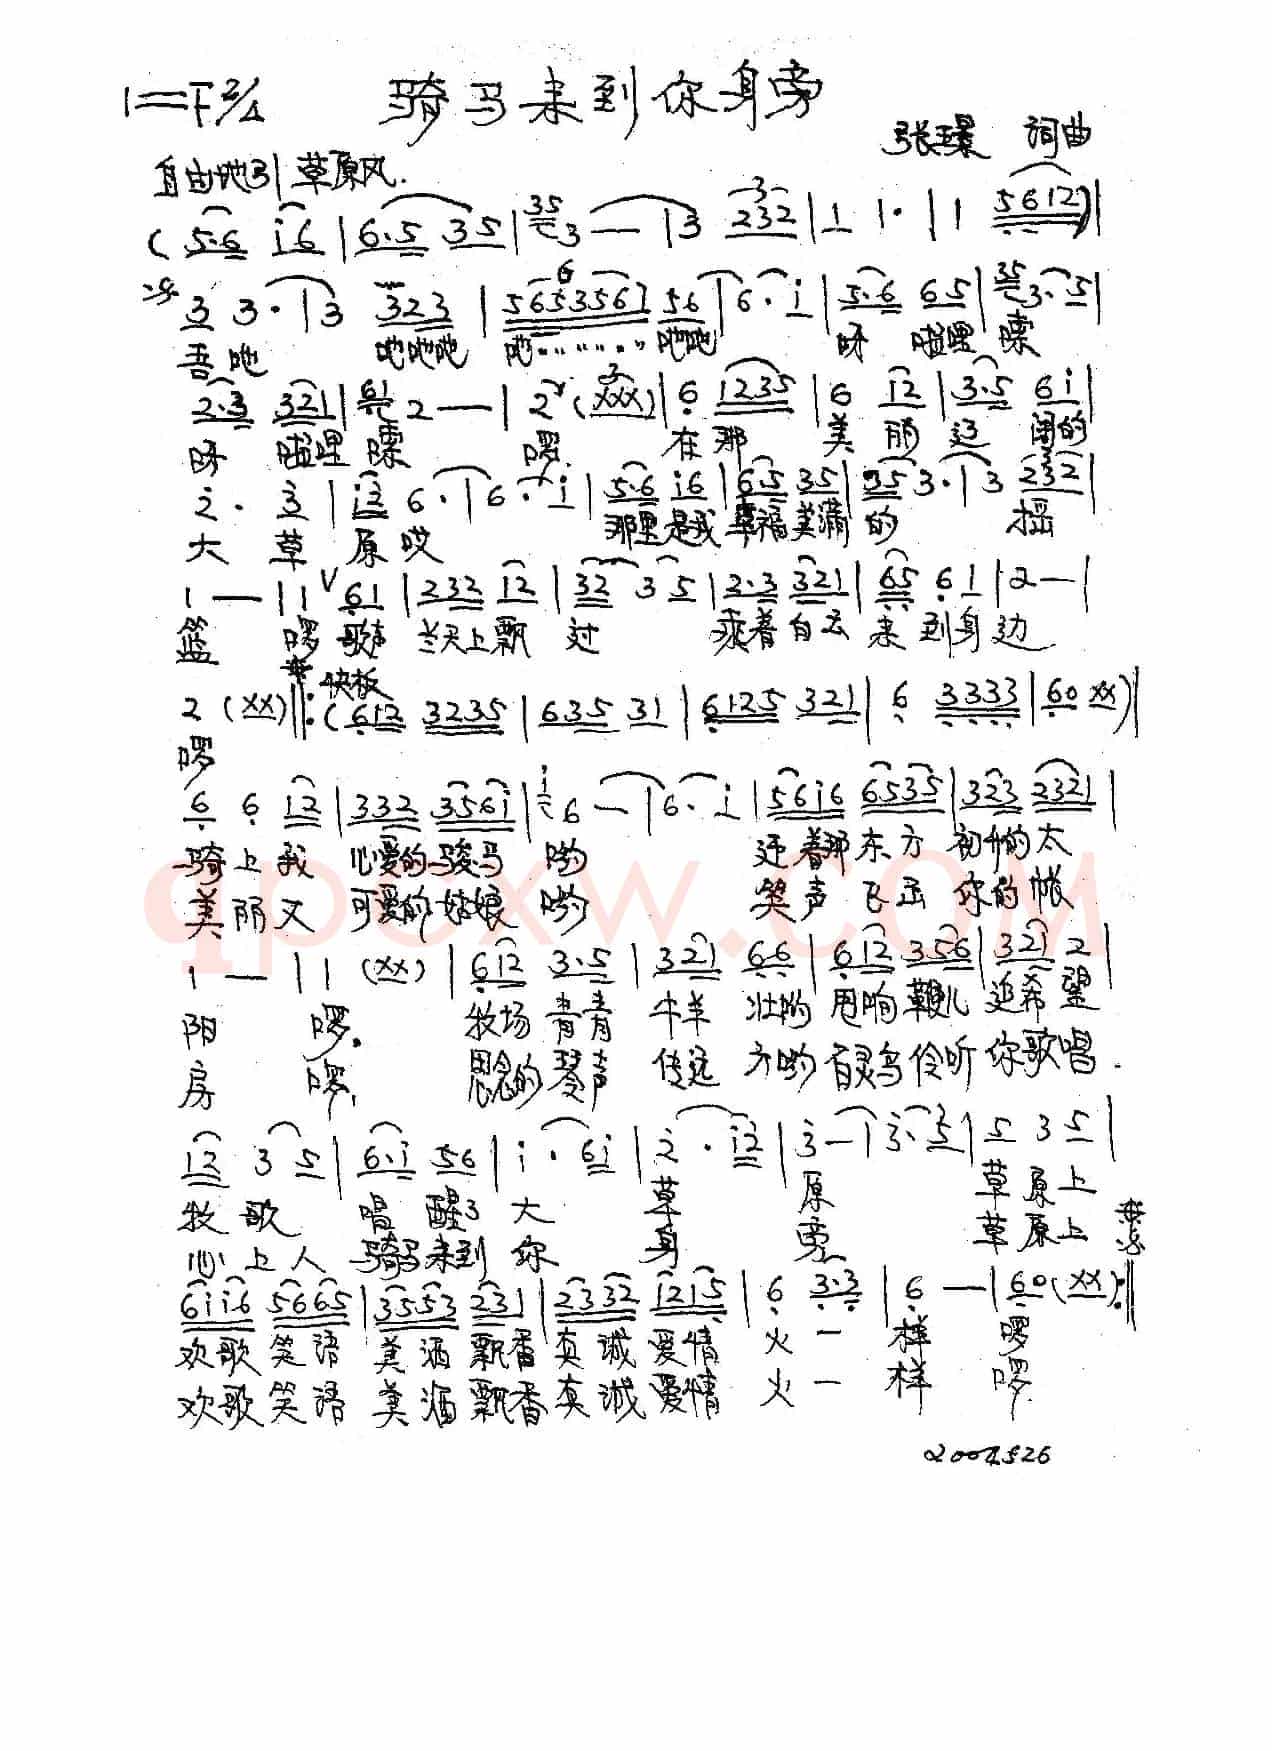 1=F 2/4 骑马来到你身旁
张璟 词曲
自由地引 草原风.
(5·6 i6 | 6·5 35 | 35 3 — | 3 232 | 1 1· | 1 5612) |
3 3· | 3 323 | 5653561 56 | 6· i | 5·6 65 | 35 3· 5 |
吾吔 吔吔吔 吔 吔吔 呀 啦哩 嗦
2·3 321 | 61 2 — | 2 (xxx) | 6 1235 | 6 i2 | 3·5 6i |
呀 啦哩 嗦 啰. 在那 美丽 辽阔的
2· 3 | i2 6· | 6· i | 5·6 i6 | 6·5 35 | 35 3· | 3 232 |
大草原哎 那里是我 幸福美满的 摇
1 — | 1 V 61 | 232 12 | 32 3 5 | 2·3 321 | 65 6 1 | 2 — |
篮 啰 歌声 兰天上飘过 乘着白云来到身边.
快板
2 (xx) ‖: (612 3235 | 635 31 | 6125 321 | 6 3333 | 60 xx) |
啰
6 6 12 | 332 356i | i 6 — | 6· i | 56i6 6535 | 323 2321 |
骑上我 心爱的骏马 哟 迎着那东方 初升的太
美丽又 可爱的姑娘 哟 笑声飞出你的帐
qpcxw.COM
1 — | 1 (xx) | 612 3·5 | 321 66 | 612 356 | 321 2 |
阳 啰. 牧场青青 牛羊壮哟 甩响鞭儿 追希望
房 啰. 思念的琴声 传远方哟 百灵鸟伶听 你歌唱.
12 3 5 | 6·i 56 | i· 6i | 2· i2 | 3 — | 3· 5 | 5 3 5 |
牧歌 唱醒了大草原 草原上
心上人 骑马来到你身旁 草原上
6ii6 5665 | 3553 231 | 2332 1215 | 6 3·3 | 6 — | 60 (xx) :‖
欢歌笑语 美酒飘香 真诚爱情 火一样 啰
欢歌笑语 美酒飘香 真诚爱情 火一样 啰.